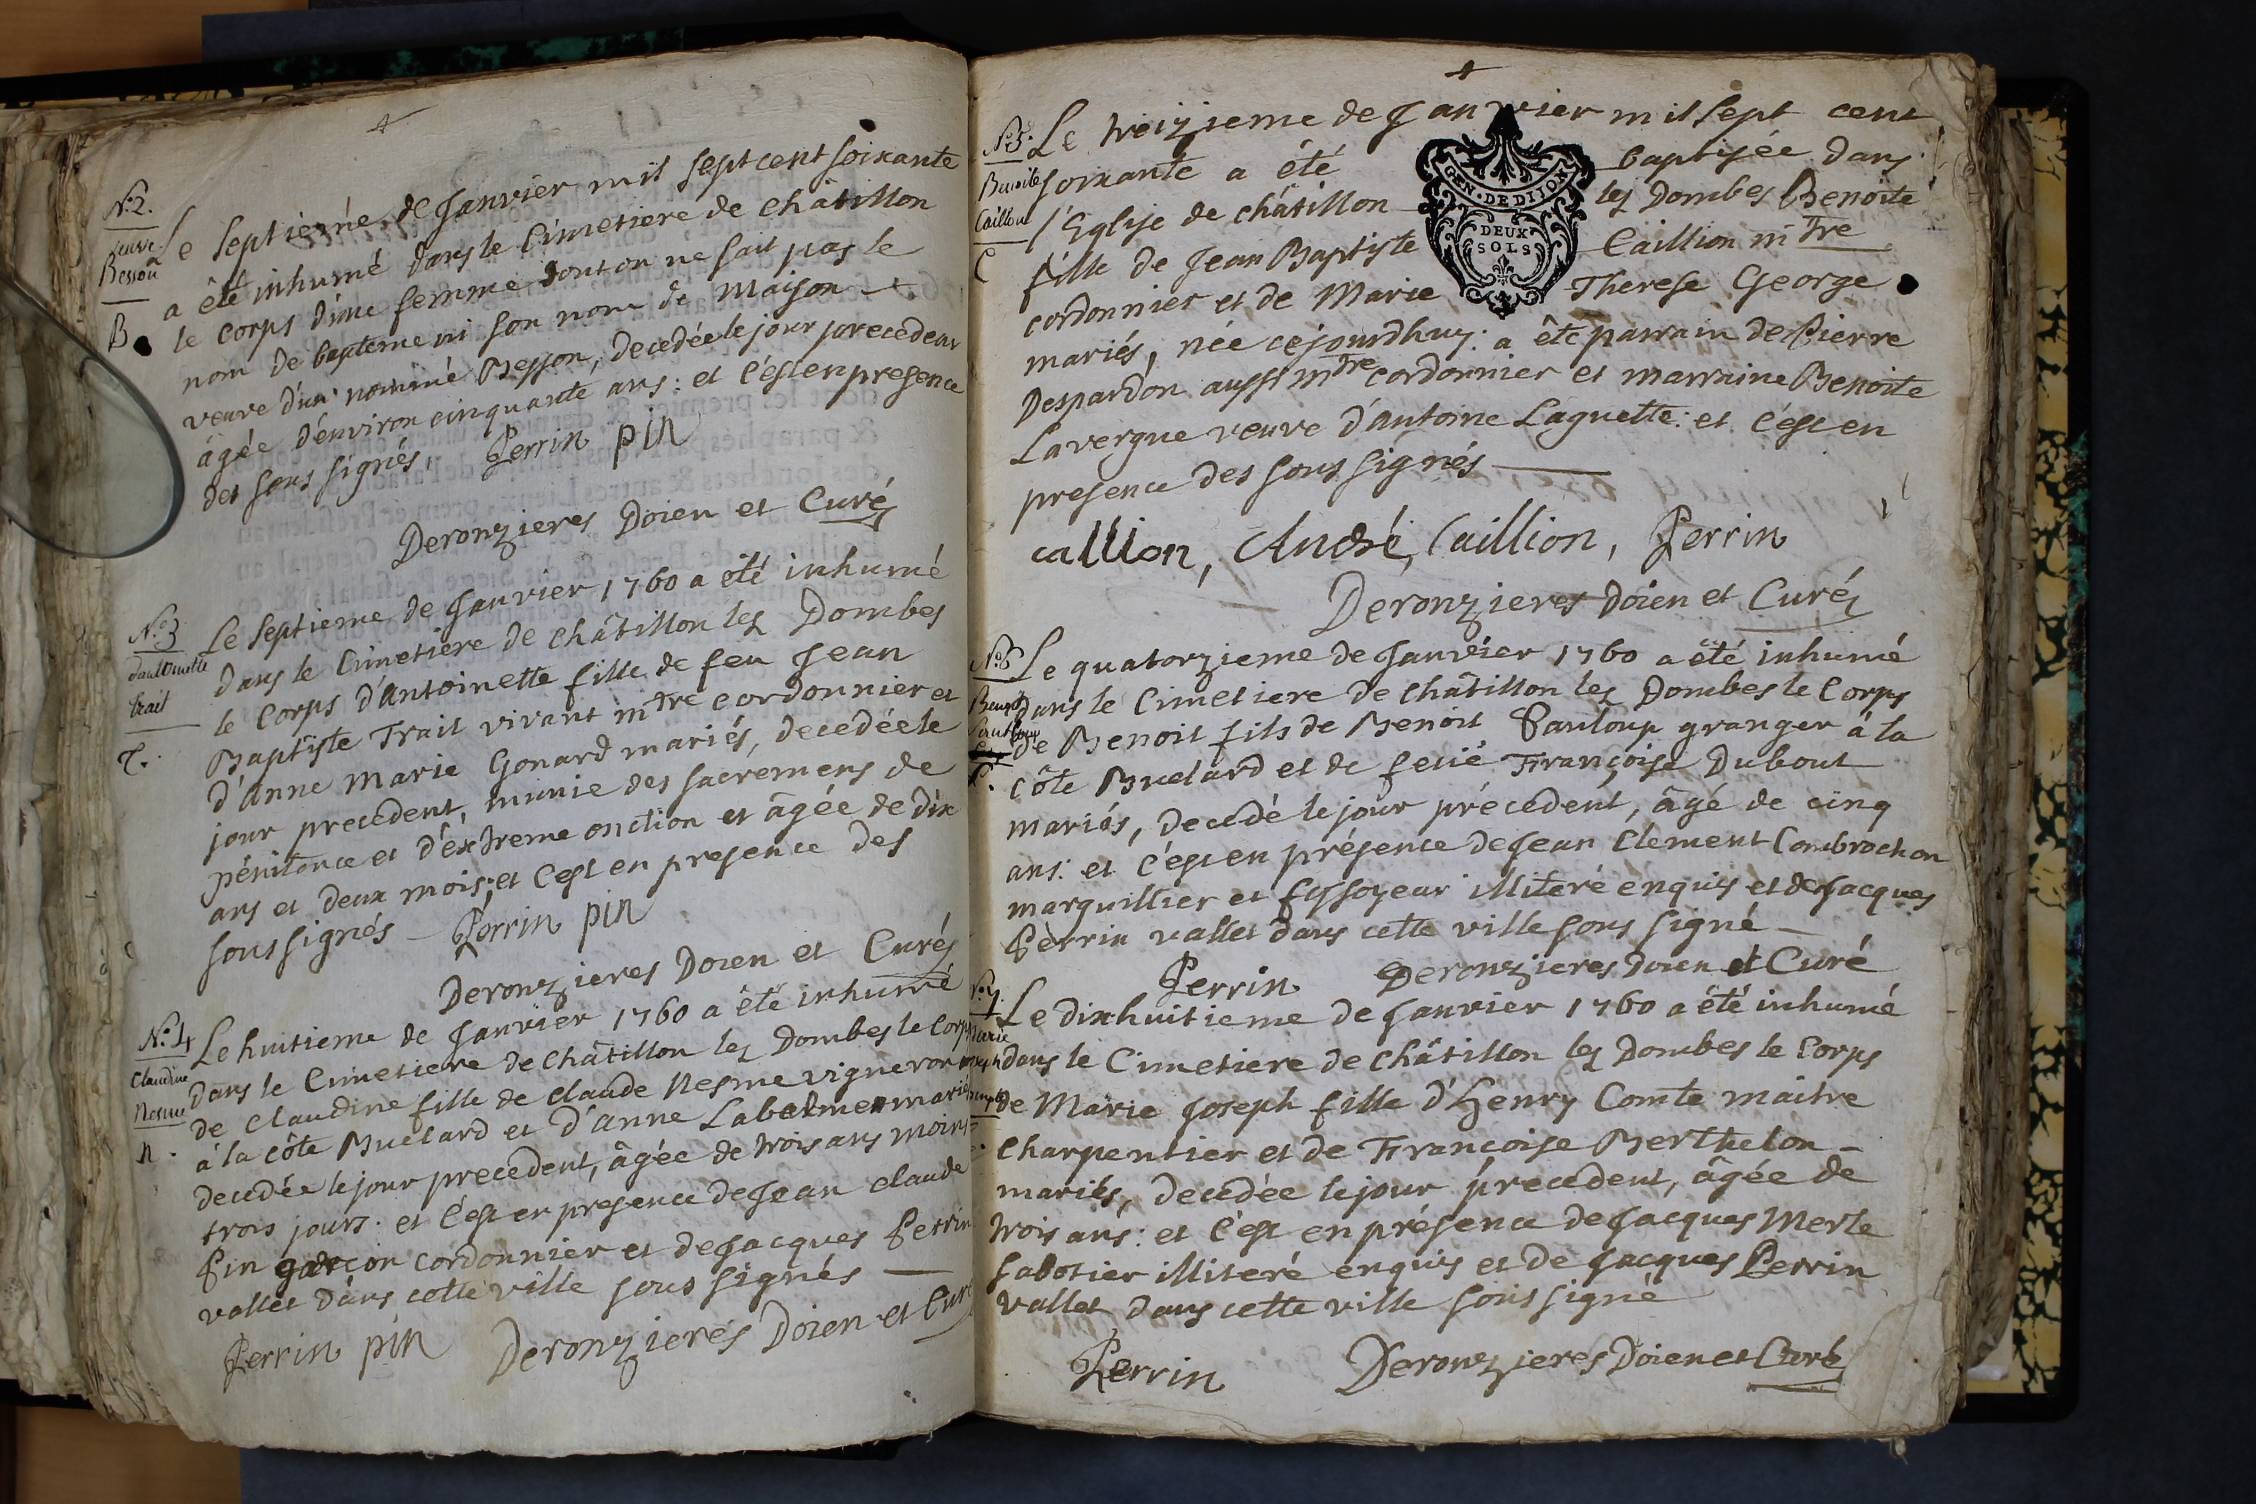 N.° 2.
veuve
Besson
B.
Le septieme de Janvier mil sept cent soixante
a êté inhumé dans le Cimetiere de châtillon
le corps d'une femme dont on ne sait pas le
nom de bapteme ni son nom de Maison
veuve d'un nommé Besson, decedée le jour precedent
âgée d'environ cinquante ans: et c'est en presence
des sous signés. Perrin pin
Deronzieres Doien et Curé
N.° 3
Trait
T.
Le septieme de Janvier 1760 a êté inhumé
dans le Cimetiere de châtillon les Dombes
le corps d'Antoinette fille de feu Jean
Baptiste Trait vivant mtre cordonnier et
d'anne Marie Gonard mariés, decedée le
jour precedent, munie des sacremens de
pénitence et d'extreme onction et âgée de dix
ans et deux mois; et c'est en presence des
sous signés - Perrin pin
Deronzieres Doien et Curé
N.° 4
Claudine
Nesme
n.
Le huitieme de Janvier 1760 a êté inhumé
dans le Cimetiere de châtillon les Dombes le corps
de Claudine fille de claude Nesme vigneron
à la côte Buelard et d'anne Labalme mariés
decedée le jour precedent, âgée de trois ans moins
trois jours. et c'est en presence de Jean claude
Pin garcon cordonnier et de Jacques Perrin
vallet dans cette ville sous signés
Perrin pin Deronzieres Doien et Curé
N.° 5.
Benoite
Caillion
C
Le treizieme de Janvier mil sept cent
soixante a êté baptisée dans
l'Eglise de châtillon les Dombes Benoite
fille de Jean Baptiste Caillion mtre
cordonnier et de Marie Therese George
mariés, née cejourdhuy. a êté parrain de Pierre
Despardon aussi mtre cordonnier et marraine Benoite
Lavergne veuve d'antoine Laguette: et c'est en
presence des sous signés
GEN. DE DIJON
DEUX
SOLS
callion, André, Caillion, Perrin
Deronzieres Doien et Curé
N.° 6
Benoit
Le quatorzieme de Janvier 1760 a êté inhumé
dans le Cimetiere de châtillon les Dombes le Corps
de Benoit fils de Benoit Pauloup granger à la
côte Buelard et de Françoise Dubout
mariés, decedé le jour précedent, âgé de cinq
ans: et c'est en présence de Jean Clement Combrochon
marguillier et fossoyeur illiteré enquis et de Jacques
Perrin vallet dans cette ville sous signé
Perrin Deronzieres Doien et Curé
N.° 7.
Marie
Joseph
Le dixhuitieme de Janvier 1760 a êté inhumé
dans le Cimetiere de châtillon les Dombes le Corps
de Marie Joseph fille d'henry Comte maitre
charpentier et de Francoise Berthelon
mariés, decedée le jour precedent, âgée de
trois ans: et c'est en présence de Jacques Merle
sabotier illiteré enquis et de Jacques Perrin
vallet dans cette ville sous signé
Perrin Deronzieres Doien et Curé